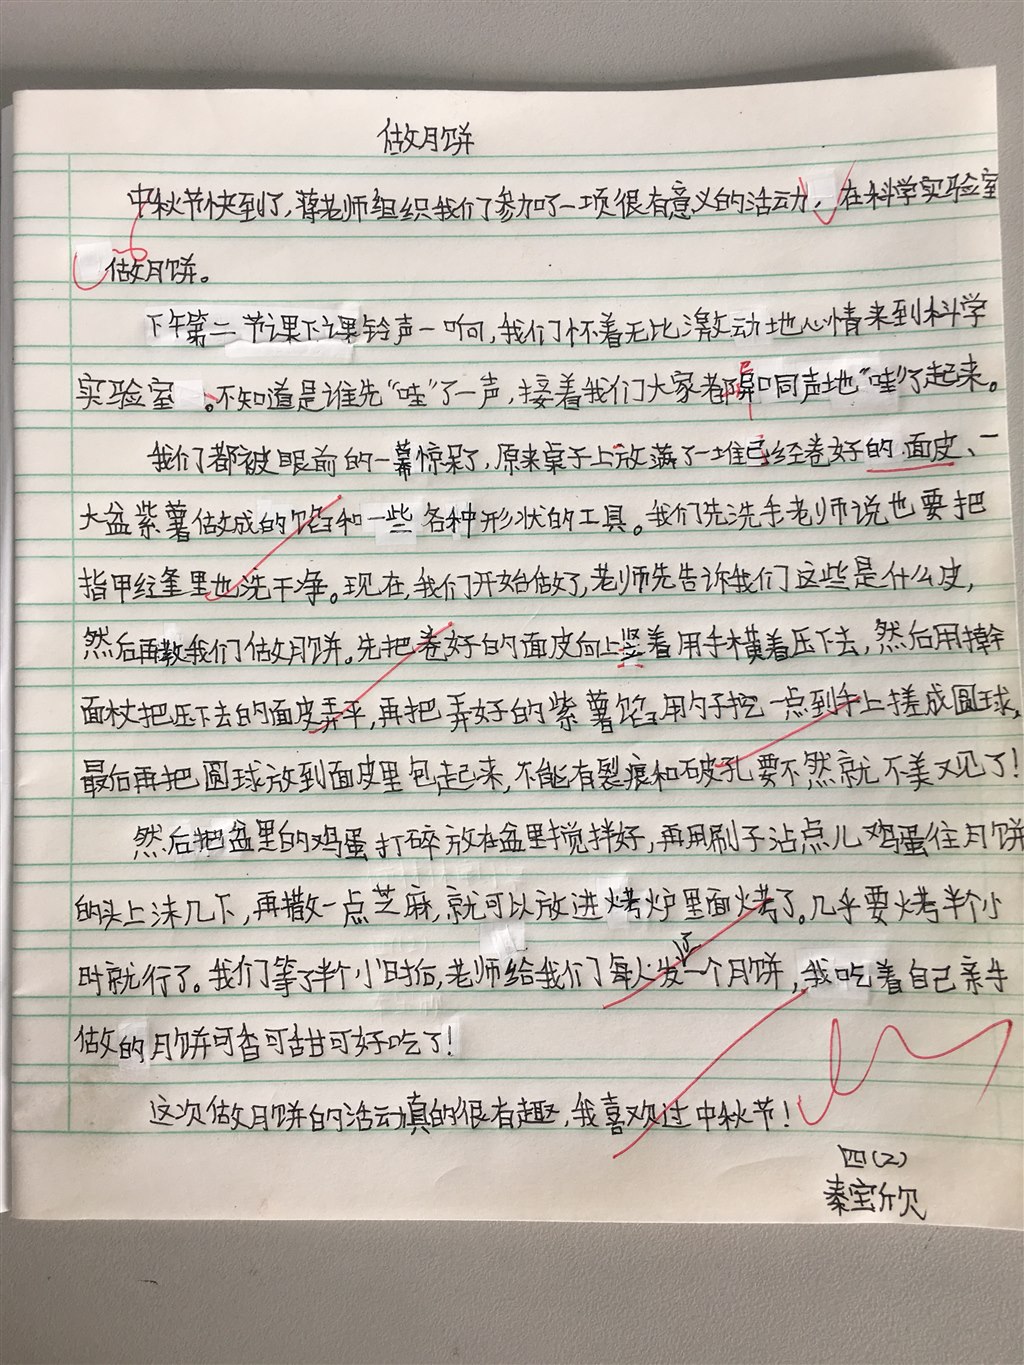 做月饼
中秋节快到了,蒋老师组织我们了参加了一项很有意义的活动,在科学实验室
做月饼。
下午第二节课下课铃声一响,我们怀着无比激动地心情来到科学
实验室。不知道是谁先“哇”了一声,接着我们大家都异口同声地“哇”了起来。
我们都被眼前的一幕惊呆了,原来桌子上放满了一堆已经卷好的面皮、一
大盆紫薯做成的馅和一些各种形状的工具。我们先洗手老师说也要把
指甲缝里也洗干净。现在,我们开始做了,老师先告诉我们这些是什么皮,
然后再教我们做月饼。先把卷好的面皮向上竖着用手横着压下去,然后用擀
面杖把压下去的面皮弄平,再把弄好的紫薯馅用勺子挖一点到手上搓成圆球,
最后再把圆球放到面皮里包起来,不能有裂痕和破孔要不然就不美观了!
然后把盆里的鸡蛋打碎放在盆里搅拌好,再用刷子沾点儿鸡蛋往月饼
的头上沫几下,再撒一点芝麻,就可以放进烤炉里面烤了。几乎要烤半个小
时就行了。我们等了半个小时后,老师给我们每人发了一个月饼,我吃着自己亲手
做的月饼可香可甜可好吃了!
这次做月饼的活动真的很有趣,我喜欢过中秋节!
四(2)
秦宝欣